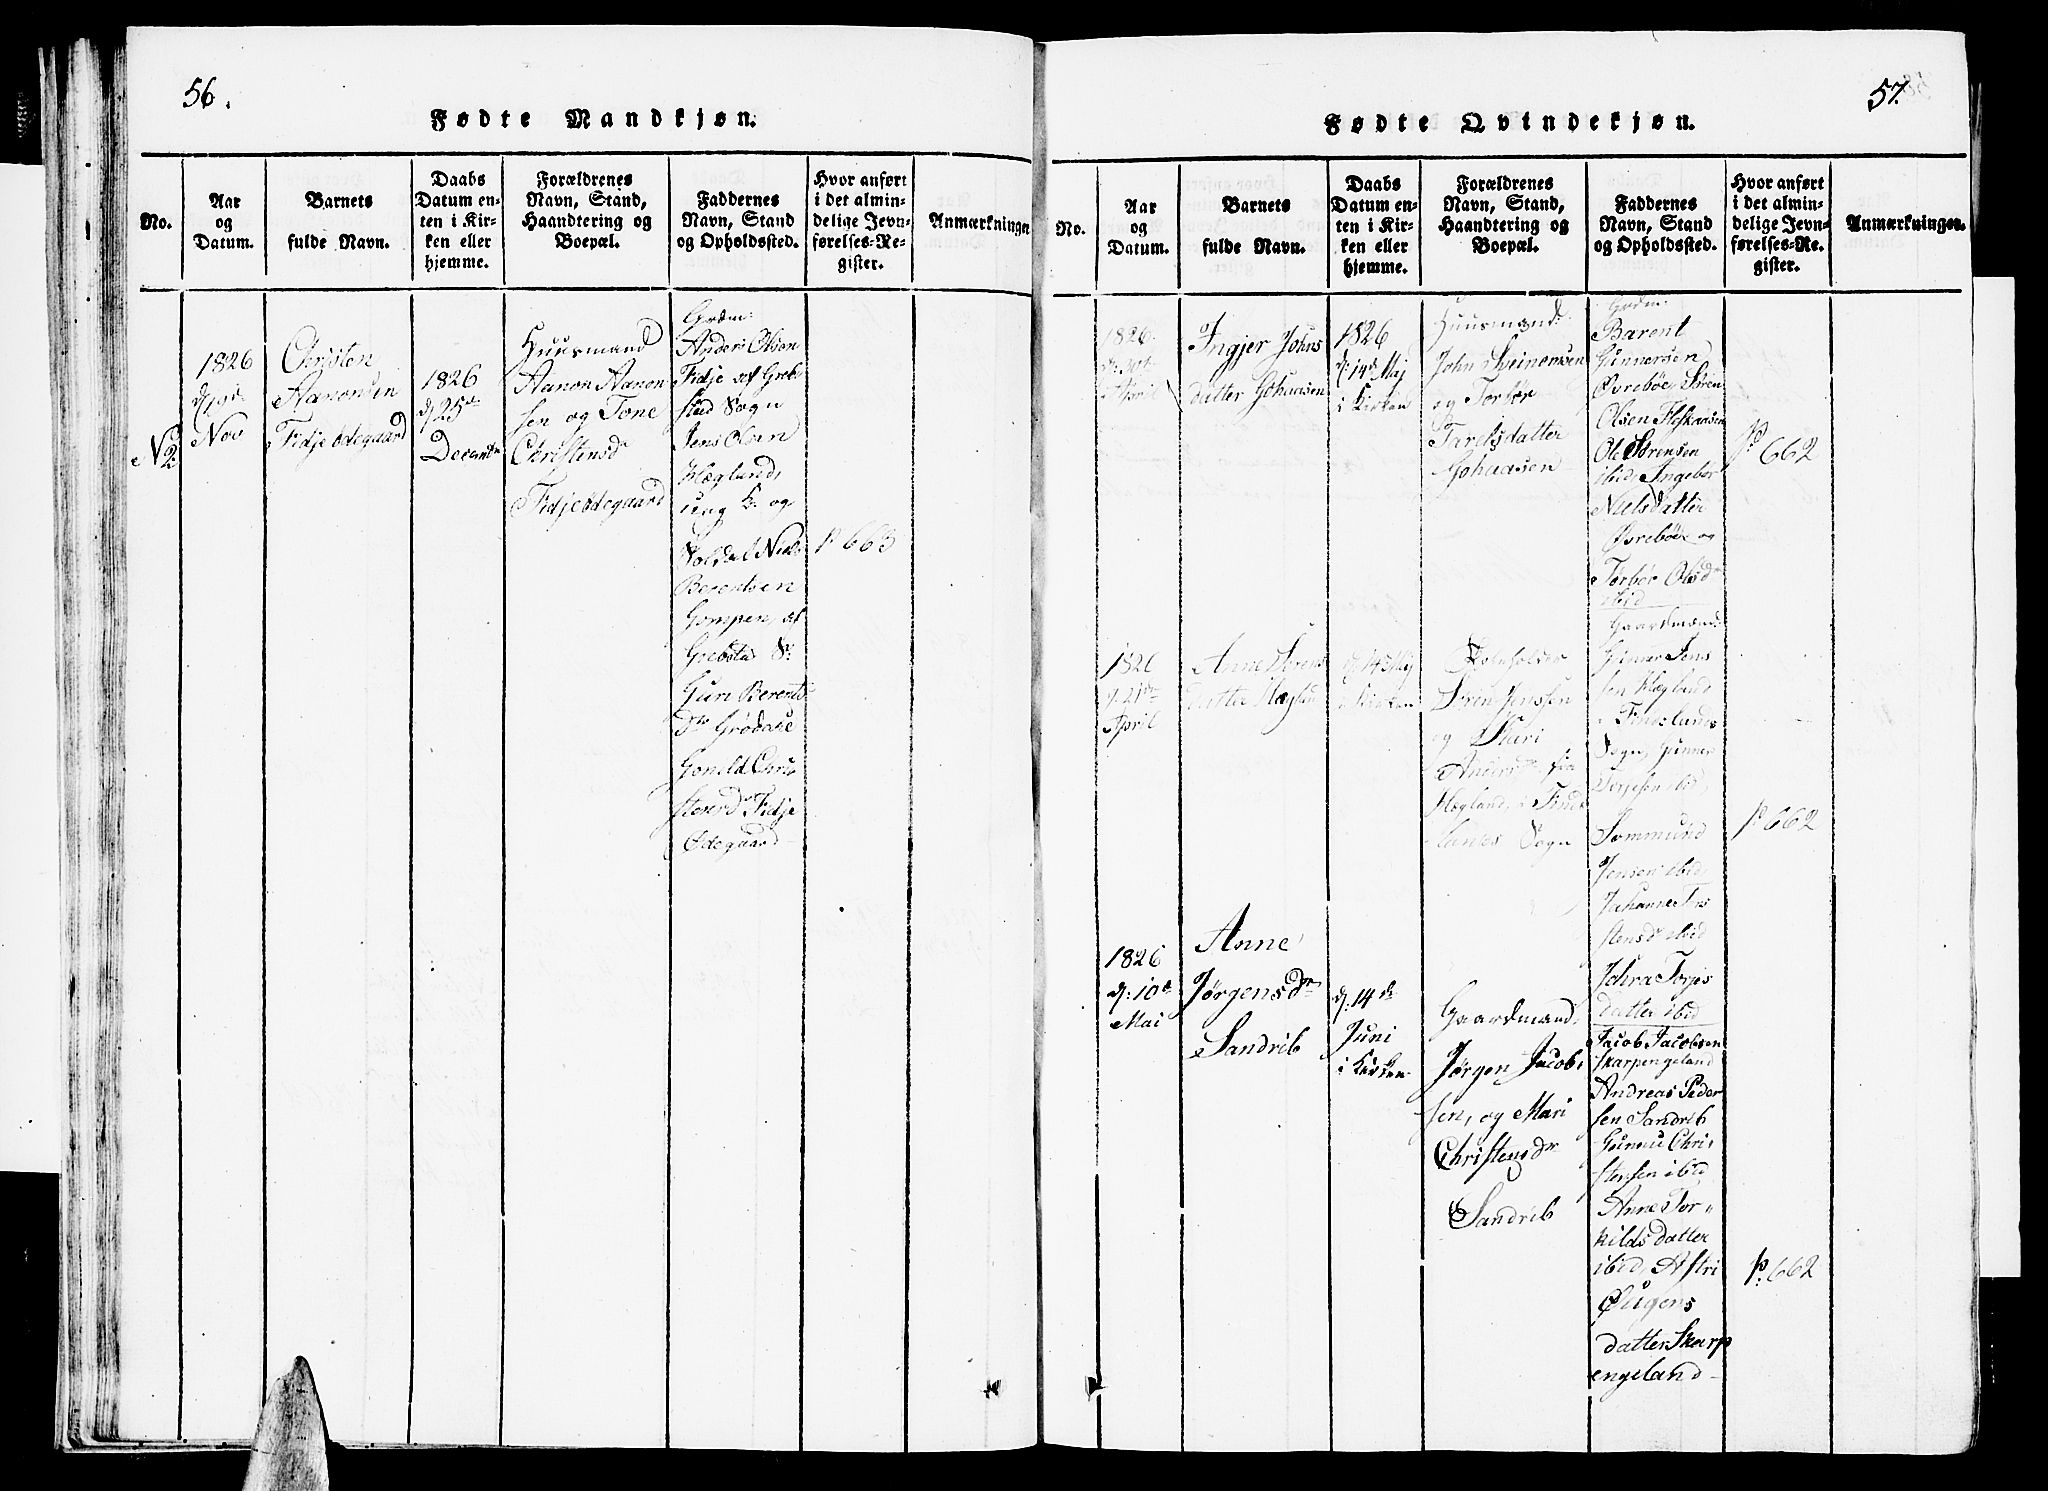 56.
Fødte Mandkjøn.
No.
Aar
og
Datum.
Barnets
fulde Navn.
Daabs
Datum en-
ten i Kir-
ken eller
hjemme.
Forældrenes
Navn, Stand,
Haandtering og
Boepæl.
Faddernes
Navn, Stand
og Opholdssted.
Hvor anført
i det almin-
delige Jevn-
førelses-Re-
gister.
Anmærkninger
N
2
1826
d 19de
Nov
Christen
Aanonsen
Fidjeødegaard
1826
d 25de
Decembr
Huusmand
Aanon Aanon
sen og Tone
Christensd
Fidjeødegaard
Grdm:
Anders Olson
Fidje af Greb
stad Sogn
Jens Olsen
Hægland,
ung K. og
Soldat Niels
Berentsen
Gompen, af
Grebsta S:
Guri Berents
dr
Gonild Chri
stensdr Fidje
Ødegaard
p 663
57.
Fødte Qvindekjøn.
No.
Aar
og
Datum.
Barnets
fulde Navn.
Daabs
Datum en-
ten i Kir-
ken eller
hjemme.
Forældrenes
Navn, Stand,
Haandtering og
Boepæl.
Faddernes
Navn, Stand
og Opholdssted.
Hvor anført
i det almin-
delige Jevn-
førelses-Re-
gister.
Anmærkninger.
1826
April
Ingjer Johns
datter Gohaasen
1826
d: 14de Maj
i Kirken
Huusmand:
John Sveinensen
og Torbør
Tarelsdatter
Gohaasen
Grdm:
Barent
Gunnersen
Øvrebøe, Sören
Olsen Fleskaasen
Ole Sørensen
ibid, Ingebør
Nielsdatter
Øvrebøe og
Torbør Olsdr
ibid
p. 662
1826
d. 21de
April
Anne Sörens
datter Hægland
d: 14de Maj
i Kirken
Sören Jenssen
og Mari
Andersdr fra
Hægland, i Finds
lands Sogn
Gaardmænd:
Gunner Jens
sen Hægland
i Finslands
Sogn, Gunner
Torjesen ibid,
Tommund
Jensen ibid,
Johanne
ibid
Torjes
datter ibid
p 662
1826
d: 10de
Mai
Anne
Jørgensdr
Sandrib
d: 14de
Juni
i Kirken
Gaardmand,
Jørgen Jacob
sen, og Mari
Christensdr
Sandrib
Jacob Jacobsen
Skarpengeland
Andreas Peder
sen Sandrib
Chri
stensen ibid
Anne Tor"
kildsdatter
ibid, Astri
Øugens
datter Skarp
engeland
p. 662